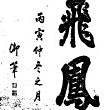 飛鳳
丙寅仲冬之月
御筆